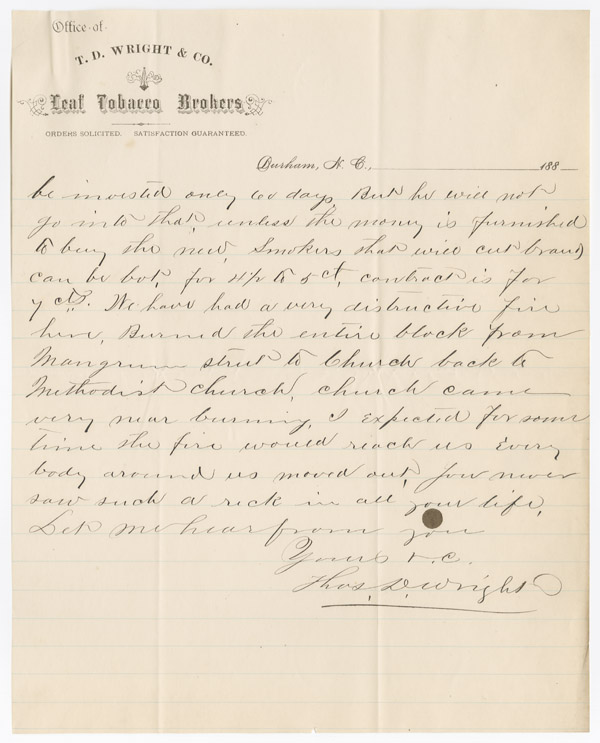 Office of
T. D. WRIGHT & CO.
Leaf Tobacco Brokers
ORDERS SOLICITED. SATISFACTION GUARANTEED.
Durham, N. C., 188
be invested only 60 days, But he will not
go into that, unless the money is furnished
to buy the new, Smokers that will cut brand
can be bot, for 4½ to 5 ct, contract is for
7 cts. We have had a very distructive fire
here, Burned the entire block from
Mangrum street to Church back to
Methodist church, church came
very near burning, I expected for some
time the fire would reach us Every
body around us moved out, You never
saw such a reck in all your life,
Let me hear from you
Yours &c.
Thos, D. Wright